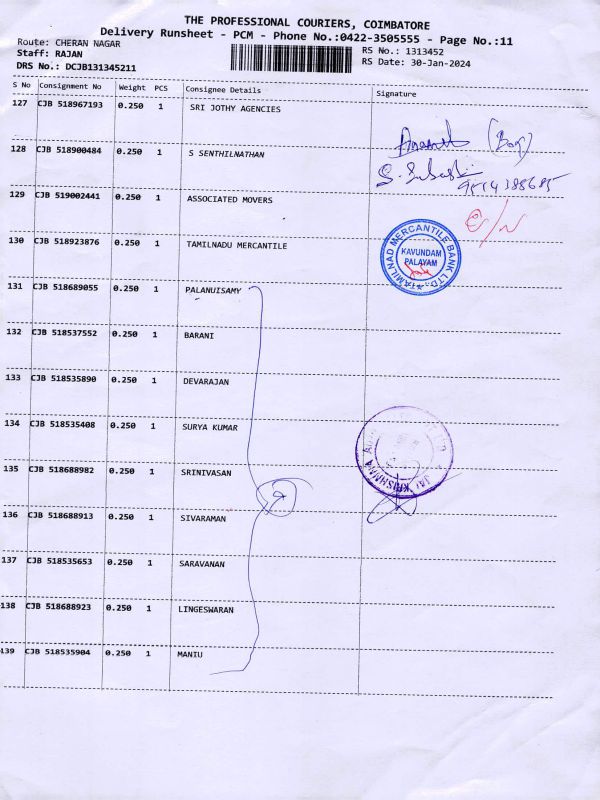 THE PROFESSIONAL COURIERS, COIMBATORE
Delivery Runsheet - PCM - Phone No.:0422-3505555 - Page No.:11
Route: CHERAN NAGAR
Staff: RAJAN
DRS No.: DCJB131345211
RS No.: 1313452
RS Date: 30-Jan-2024
S No Consignment No Weight PCS Consignee Details Signature
127 CJB 518967193 0.250 1 SRI JOTHY AGENCIES
128 CJB 518900484 0.250 1 S SENTHILNATHAN
129 CJB 519002441 0.250 1 ASSOCIATED MOVERS
130 CJB 518923876 0.250 1 TAMILNADU MERCANTILE
TAMILNAD MERCANTILE BANK LTD.,
KAVUNDAM
PALAYAM
131 CJB 518689055 0.250 1 PALANUISAMY
132 CJB 518537552 0.250 1 BARANI
133 CJB 518535890 0.250 1 DEVARAJAN
134 CJB 518535408 0.250 1 SURYA KUMAR
135 CJB 518688982 0.250 1 SRINIVASAN
KRISHNA
136 CJB 518688913 0.250 1 SIVARAMAN
137 CJB 518535653 0.250 1 SARAVANAN
138 CJB 518688923 0.250 1 LINGESWARAN
139 CJB 518535904 0.250 1 MANIU